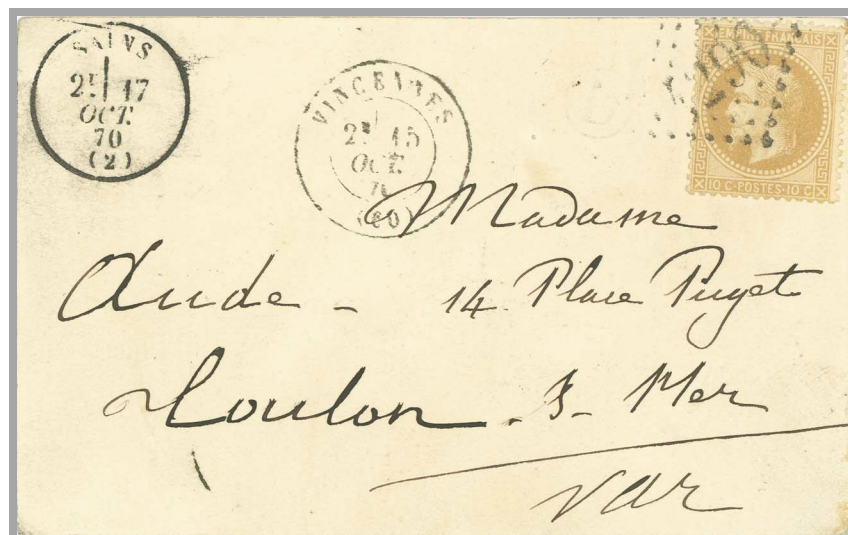 SAINS
2E 17
OCT.
70
(2)
VINCENNES
2E 15
OCT.
70
(80)
EMPIRE FRANCAIS
4296
10 C·POSTES·10 C
Madame
Aude - 14 Place Puget
Toulon - s - Mer
Var